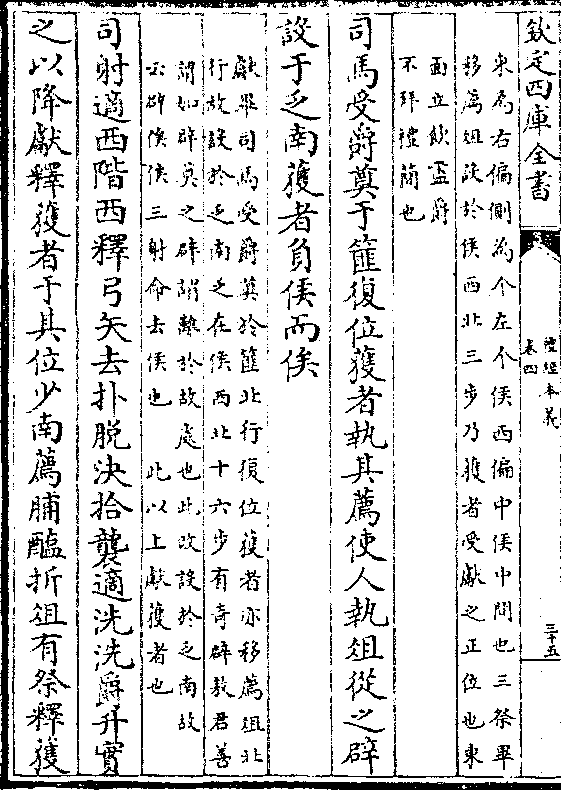 欽定四庫全書
禮經本義
卷四
三十五
東為右偏側為个左个侯西偏中侯中間也三祭畢
移薦俎設於侯西北三步乃獲者受獻之正位也東
面立飲盃爵
不拜禮簡也
司馬受爵奠于篚復位獲者執其薦使人執俎從之辟
設于乏南獲者負侯而俟
獻畢司馬受爵奠於篚北行復位獲者亦移薦俎北
行故設於乏南乏在侯西北十六步有奇辟敖君善
謂如辟奠之辟謂離於故處也此改設於乏南故
云辟俟俟三射命去侯也 此以上獻獲者也
司射適西階西釋弓矢去扑脫決拾襲適洗洗爵升實
之以降獻釋獲者于其位少南薦脯醢折俎有祭釋獲